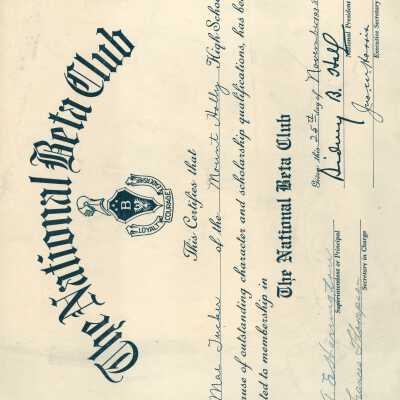 The National Beta Club
LEADERSHIP
B
LOYALTY
COURAGE
This Certifies that
Mae Tucker of the Mount Holly High School
ause of outstanding character and scholarship qualifications, has been
ted to membership in
The National Beta Club
Given this 25th day of November 193
Sidney B. Hall
National President
Executive Secretary
Superintendent or Principal
Secretary in Charge